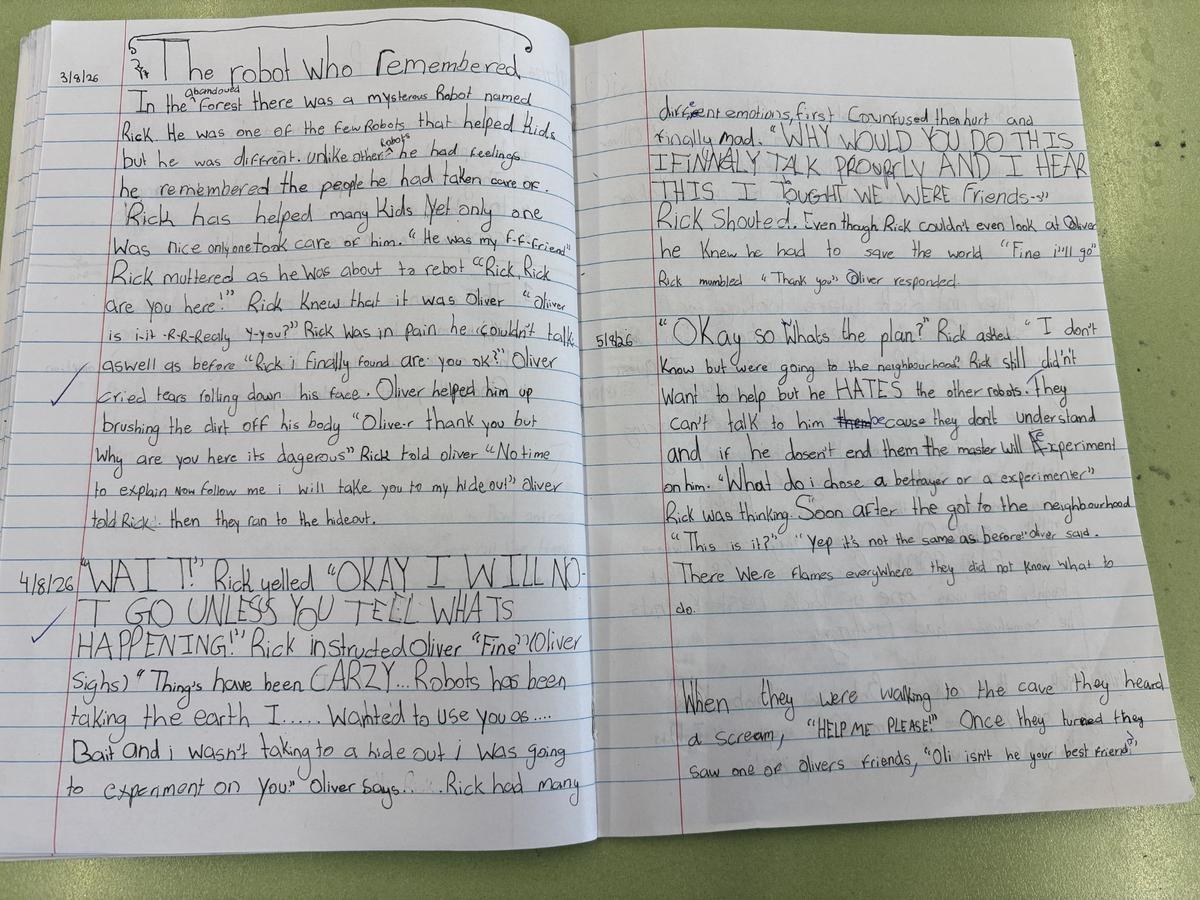 The robot who remembered
3/8/26
abandoued
In the forest there was a mysterous Robot named
Rick. He was one of the few Robots that helped Kids
robots
but he was different. unlike other he had feelings
he remembered the people he had taken care of.
Rick has helped many Kids Yet only one
was nice only one took care of him. "He was my f-f-friend"
Rick muttered as he was about to rebot "Rick, Rick
are you here!" Rick knew that it was Oliver "Oliver
is i-it -R-R-Realy Y-you?" Rick was in pain he couldn't talk
aswell as before "Rick i finally found are you ok?" Oliver
cried tears rolling down his face. Oliver helped him up
brushing the dirt off his body "Olive-r thank you but
why are you here its dagerous" Rick told oliver "No time
to explain Now follow me i will take you to my hideout" oliver
told Rick. then they ran to the hideout.
4/8/26
"WAIT!" Rick yelled "OKAY I WILL NO-
T GO UNLESS YOU TELL WHATS
HAPPENING!" Rick instructed Oliver "Fine" (Oliver
Sighs) "Thing's have been CARZY... Robots has been
taking the earth I...... Wanted to use you as ....
Bait and i wasn't taking to a hide out i was going
to experiment on you." Oliver Says..... Rick had many
different emotions, first Counfused then hurt and
finally mad. "WHY WOULD YOU DO THIS
I FINNALY TALK PROUPERLY AND I HEAR
THIS I TOUGHT WE WERE Friends--"
Rick Shouted. Even though Rick couldn't even look at Oliver
he knew he had to save the world "Fine i'll go"
Rick mumbled "Thank you" Oliver responded.
5/8/26
"OKay so Whats the plan?" Rick asked "I don't
know but were going to the neighbourhood" Rick still didn't
want to help but he HATES the other robots. They
can't talk to him because they don't understand
and if he dosen't end them the master will Experiment
on him. "What do i chose a betrayer or a experimenter"
Rick was thinking. Soon after the got to the neighbourhood
"This is it?" "Yep it's not the same as before!" oliver said.
There Were flames everywhere they did not know what to
do.
When they were walking to the cave they heard
a scream, "HELP ME PLEASE!" Once they turned they
saw one of olivers friends, "Oli isn't he your best friend?"